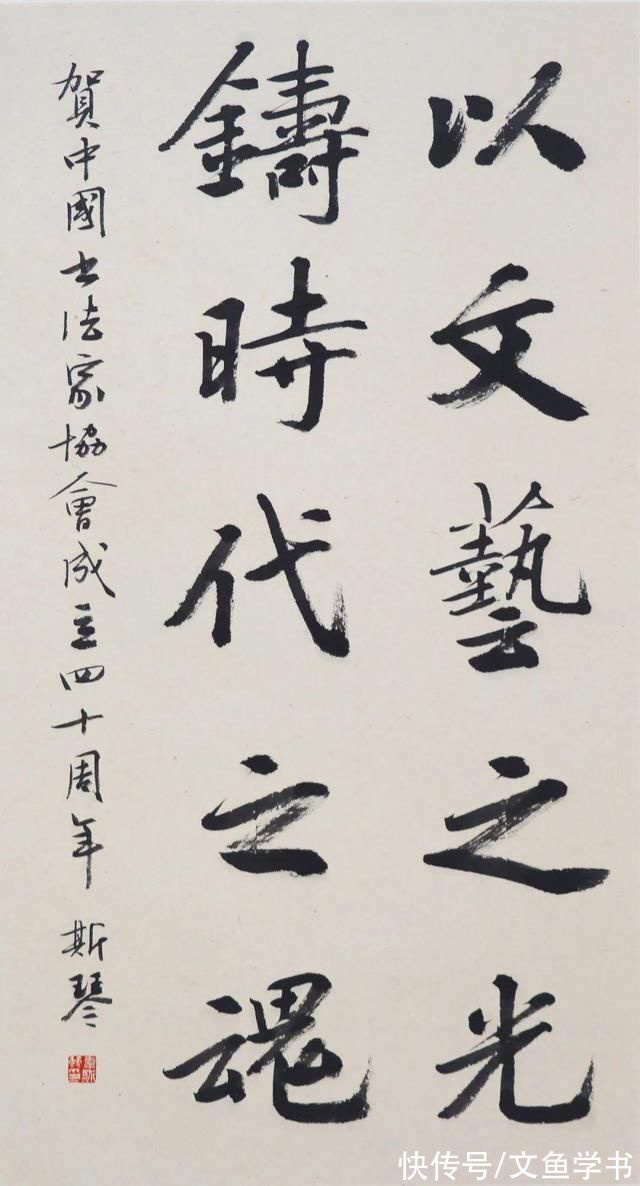 以文藝之光
鑄時代之魂
賀中國书法家協會成立四十周年 斯琴
快传号/文鱼学书